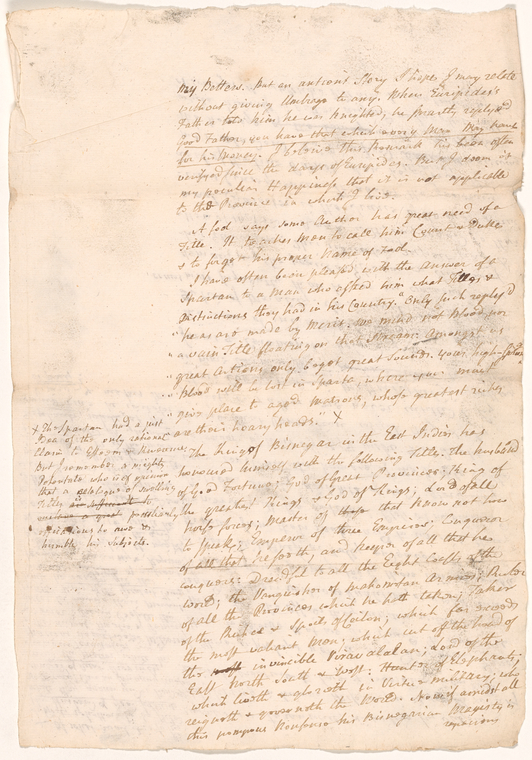 my Betters. But an antient Story I hope I may relate
without giving Umbrage to any. When Euripides's
Father told him he was Knighted, he smartly reply'd
Good Father, you have that which every Man May have
for his Money. I believe this Remark has been often
verifyed since the days of Euripides. But I deem it
my peculiar Happiness that it is not applicable
to the Province in which I live.
A fool says some Author has great need of a
Title. It teaches Men to call him Count & Duke
& to forget his proper Name of Fool.
I have often been pleased with the Answer of a
Spartan to a Man who asked him what Titles &
distinctions they had in his Country. "Only such reply'd
"he as are made by Merit. We mind not Blood, nor
"a vain Title floating on that Stream; Amongst us
"great Actions only beget great Sounds. Your high-
"Blood will be lost in Sparta, where you must
"give place to aged Matrons, whose greatest riches
"are their hoary heads." X
X The Spartan had a just
Idea of the only rational
Claim to Esteem & Reverence,
But I remember a mighty
Potentate who is of opinion
that a Catalogue of swelling
Titles
efficacious to awe &
humble his Subjects.
The King of Bisnegar in the East Indies has
honoured himself with the following Title. The husband
of Good Fortune; God of Great Provinces; King of
the greatest Kings & God of Kings; Lord of all
horse forces; Master of those that know not how
to speak; Emperor of three Emperors; Conqueror
of all that he seeth, and keeper of all that he
conquers; Dreadful to all the Eight Coasts of the
World; the Vanquisher of Mahometan Armies; Ruler
of all the Provinces which he hath taken; Taker
of the Riches & Spoils of Ceilon; which far exceeds
the most valiant Man; which cut off the head of
the invincible Viravalalan; Lord of the
East North South & West; Hunter of Elephants;
which liveth & glorieth in Virtue military; who
reigneth & governeth the World. Now if amidst all
this pompous Nonsense his Bisnegarian Majesty is